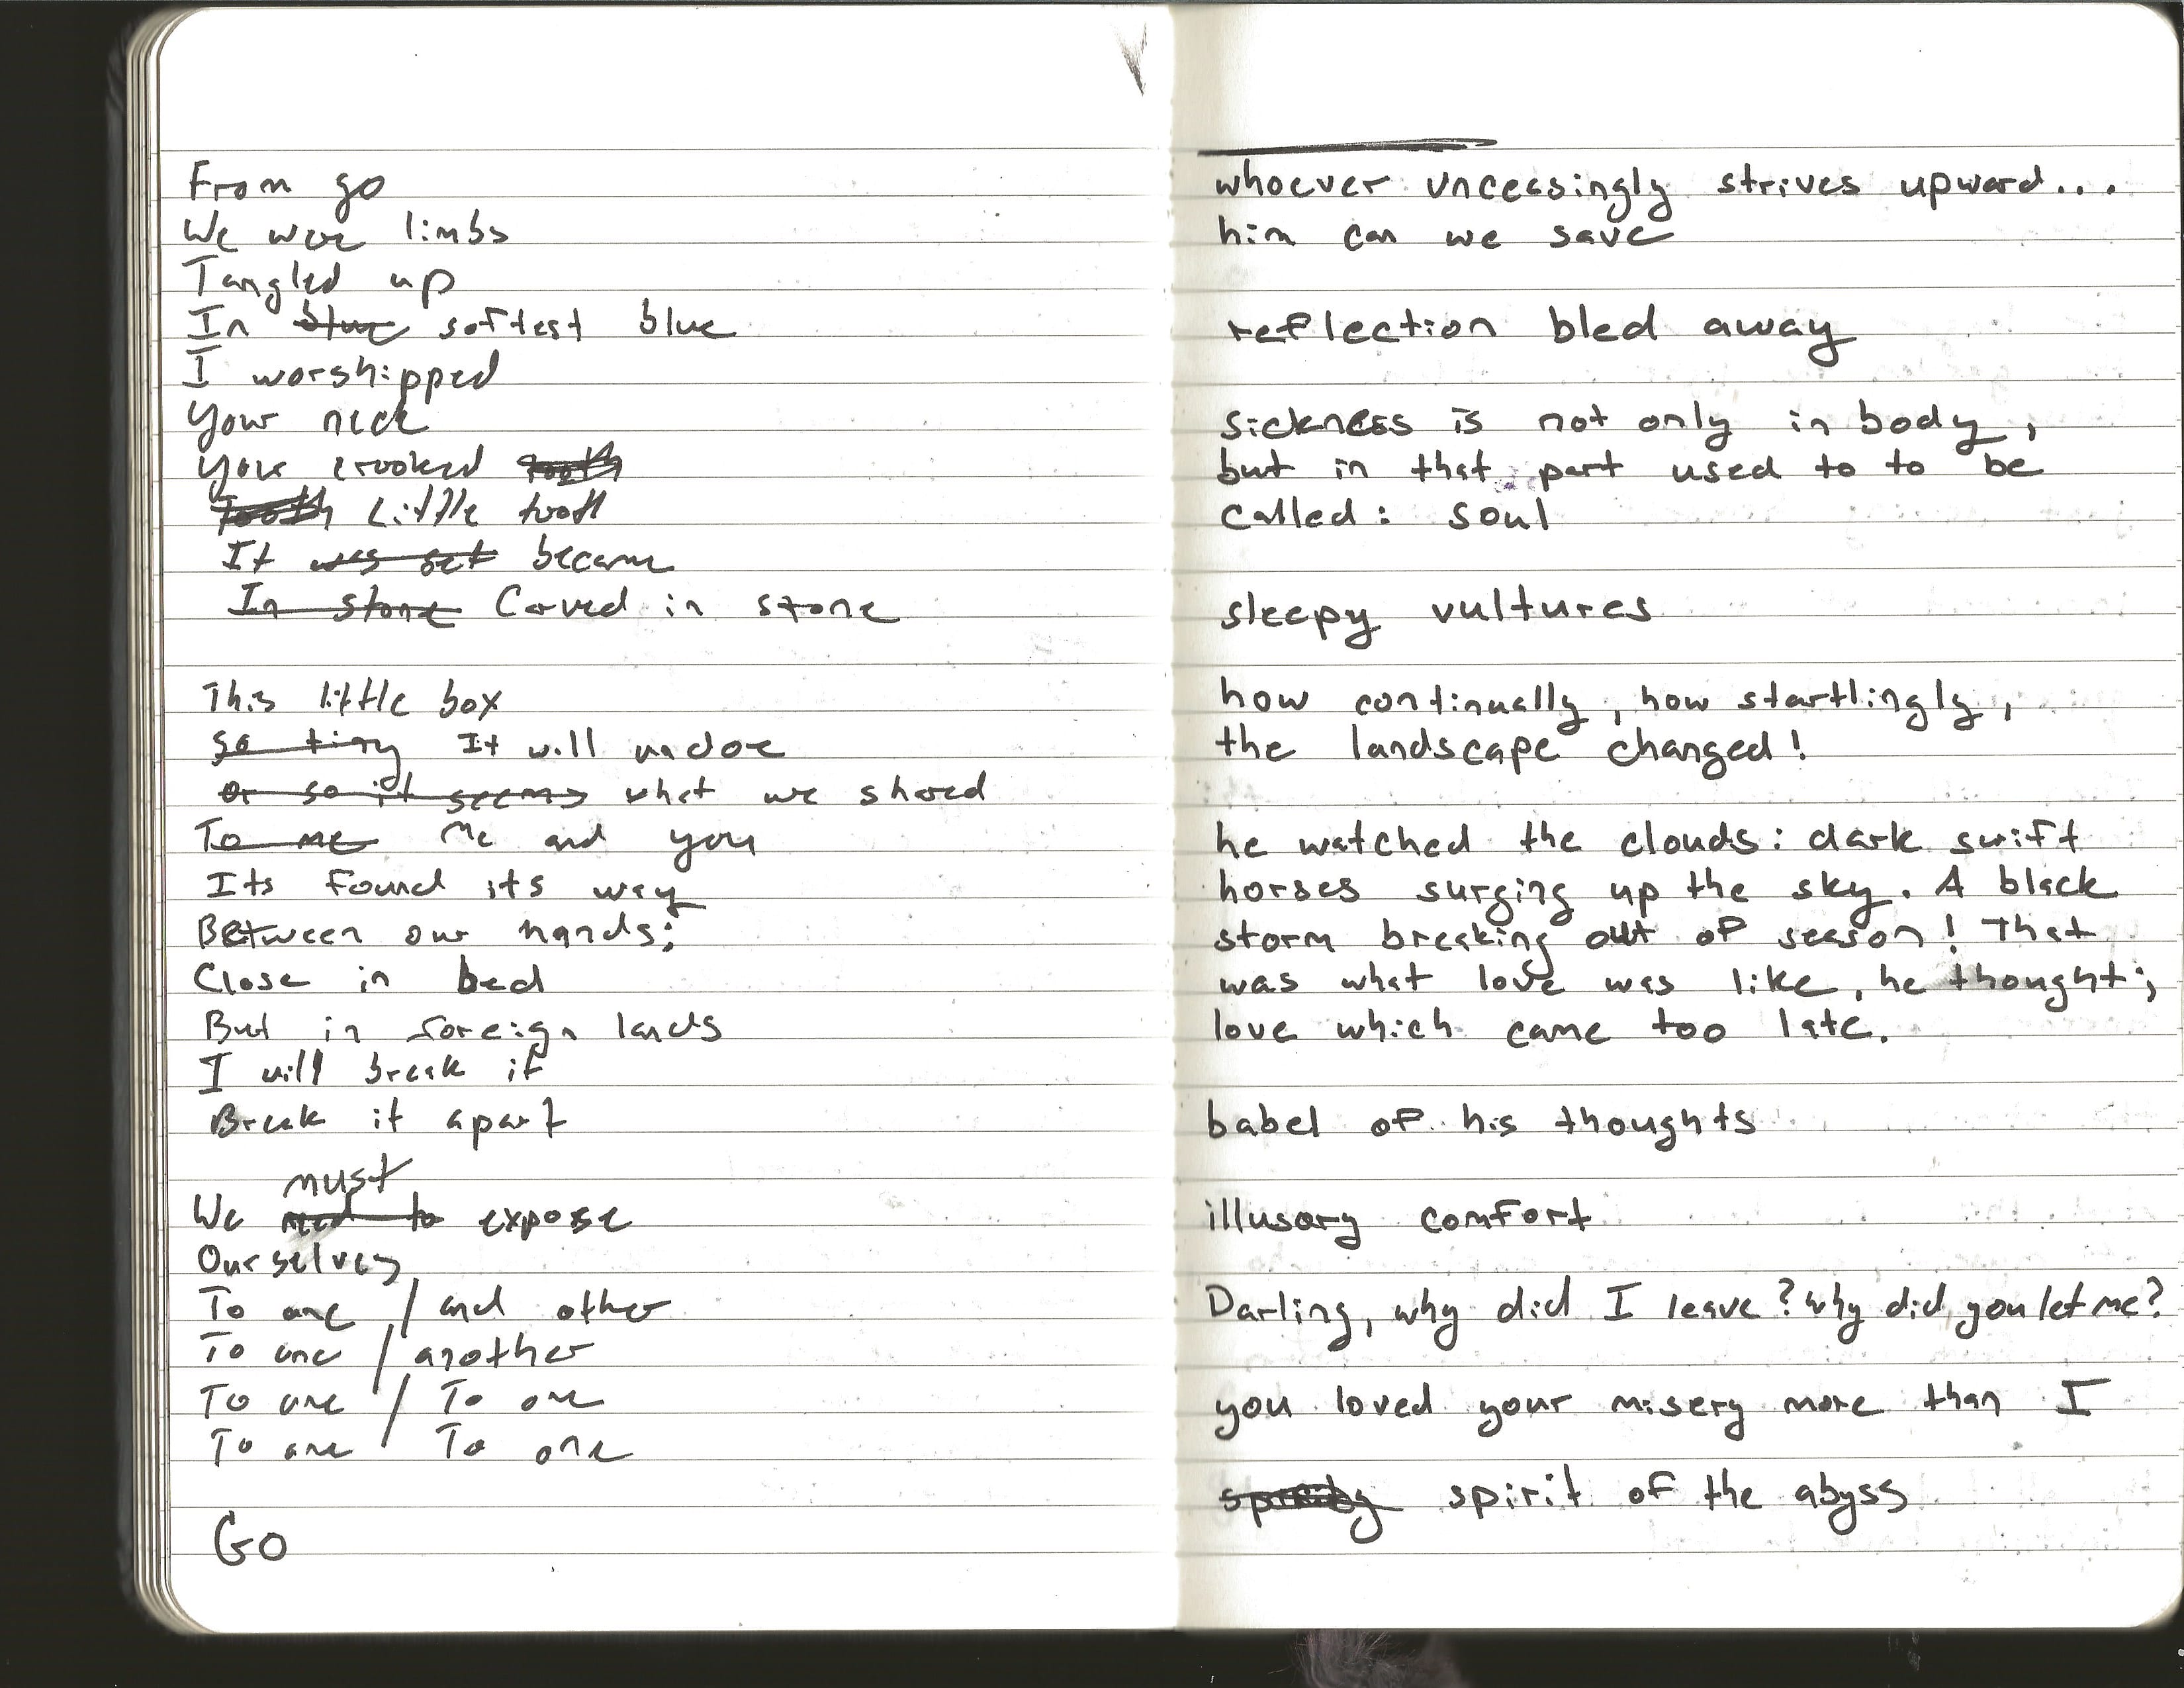 From go
We were limbs
Tangled up
In blue softest blue
I worshipped
Your neck
Your crooked tooth
Tooth Little tooth
It was set became
In stone Carved in stone
This little box
so tiny It will undoe
Or so it seems what we shared
To me Me and you
Its found its way
Between our hands;
Close in bed
But in foreign lands
I will break it
Break it apart
must
We need to expose
Ourselves
To one / and other
To one / another
To one / To one
To one / To one
Go
whoever uncessingly strives upward...
him can we save
reflection bled away
sickness is not only in body,
but in that part used to to be
called: soul
sleepy vultures
how continually, how startlingly,
the landscape changed!
he watched the clouds: dark swift
horses surging up the sky. A black
storm breaking out of season! That
was what love was like, he thought;
love which came too late.
babel of his thoughts
illusary comfort
Darling, why did I leave? why did you let me?
you loved your misery more than I
spirit of the abyss